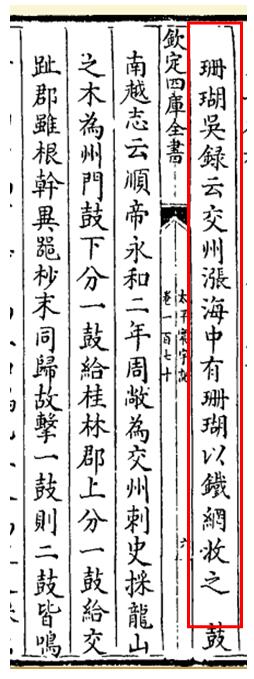 珊瑚吳録云交州漲海中有珊瑚以鐵網收之 鼓
欽定四庫全書
太平寰宇記
卷一百七十
六
南越志云順帝永和二年周敞為交州刺史採龍山
之木為州門鼓下分一鼓給桂林郡上分一鼓給交
趾郡雖根幹異邈杪末同歸故擊一鼓則二鼓皆鳴